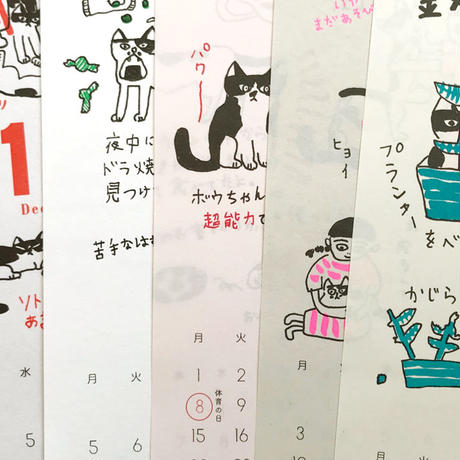 1
De
ソト
あま
水
5
夜中に
ドラ焼
見つけ
苦手なは
月 火
5 6
パワー
ボウちゃん
超能力で
月 火
1 2
8 体育の日 9
15 16
22
まだあそん
ヒョ
イ
月
3
10
プランター
をべ
かじら
月 火